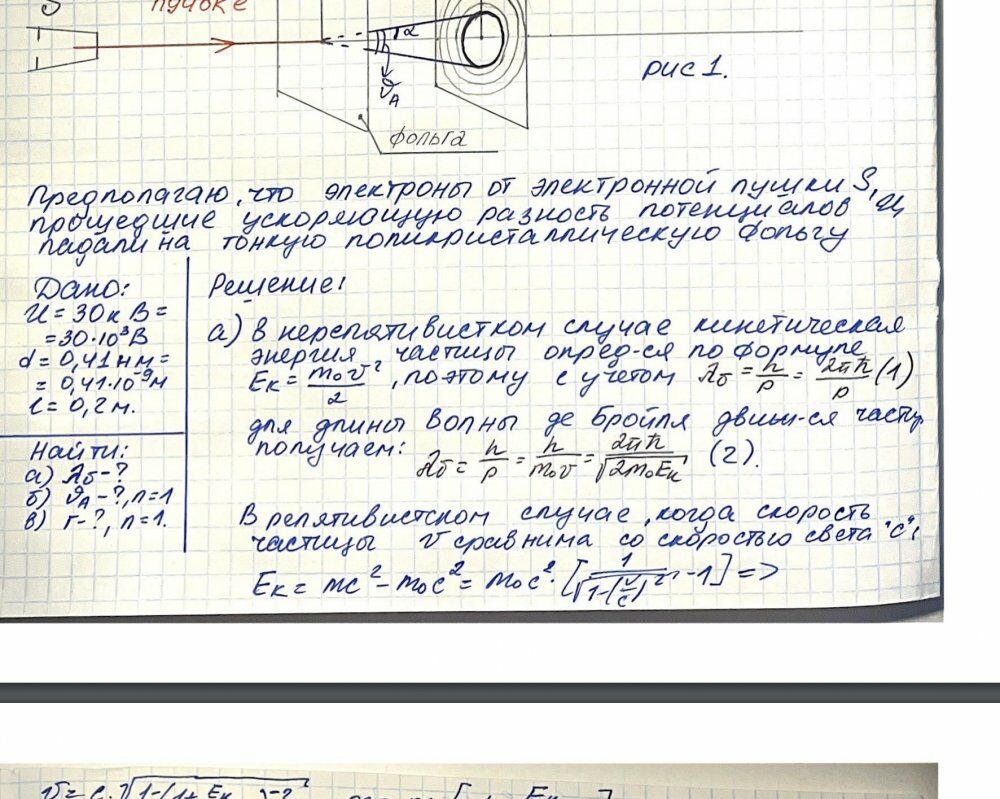 S
пучоке
α
ϑA
рис 1.
фольга
Предполагаю, что электроны от электронной пушки S,
прошедшие ускоряющую разность потенциалов U,
падали на тонкую поликристаллическую фольгу
Дано:
U = 30 кВ =
= 30·10³В
d = 0,41 нм =
= 0,41·10⁻⁹м
l = 0,2 м.
Найти:
а) λб - ?
б) ϑA - ?, n=1
в) r - ?, n=1.
Решение:
а) В нерелятивистком случае кинетическая
энергия частицы опред-ся по формуле
Eк = m₀v²/2, поэтому с учетом λб = h/p = 2πħ/p (1)
для длины волны де Бройля движ-ся частиц
получаем: λб = h/p = h/m₀v = 2πħ/√2m₀Eк (2).
В релятивистском случае, когда скорость
частицы v сравнима со скоростью света "c",
Eк = mc² - m₀c² = m₀c²·[1/√1-(v/c)² - 1] =>
v = c·√1-(1+ Eк )⁻²